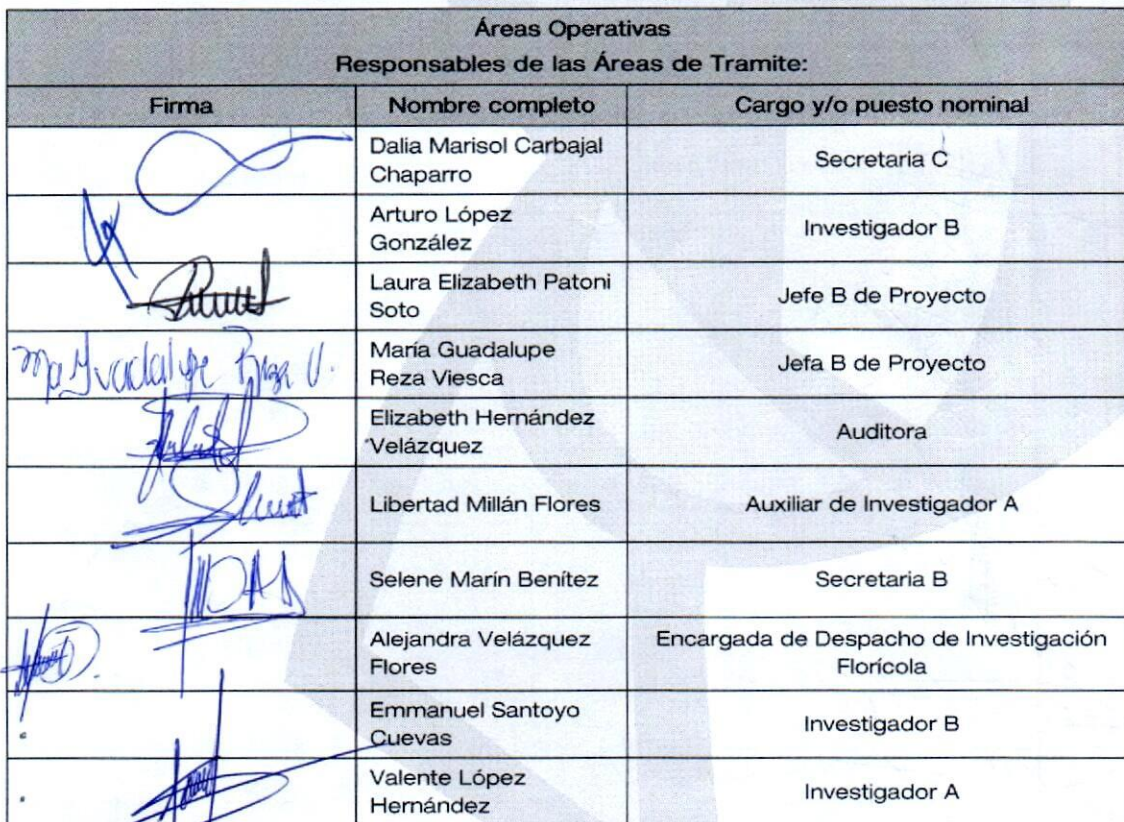 Áreas Operativas
Responsables de las Áreas de Tramite:
Firma Nombre completo Cargo y/o puesto nominal
Dalia Marisol Carbajal
Chaparro
Secretaria C
Arturo López
González
Investigador B
Laura Elizabeth Patoni
Soto
Jefe B de Proyecto
Ma Guadalupe Reza V.
María Guadalupe
Reza Viesca
Jefa B de Proyecto
Elizabeth Hernández
Velázquez
Auditora
Libertad Millán Flores
Auxiliar de Investigador A
Selene Marín Benítez
Secretaria B
Alejandra Velázquez
Flores
Encargada de Despacho de Investigación
Florícola
Emmanuel Santoyo
Cuevas
Investigador B
Valente López
Hernández
Investigador A